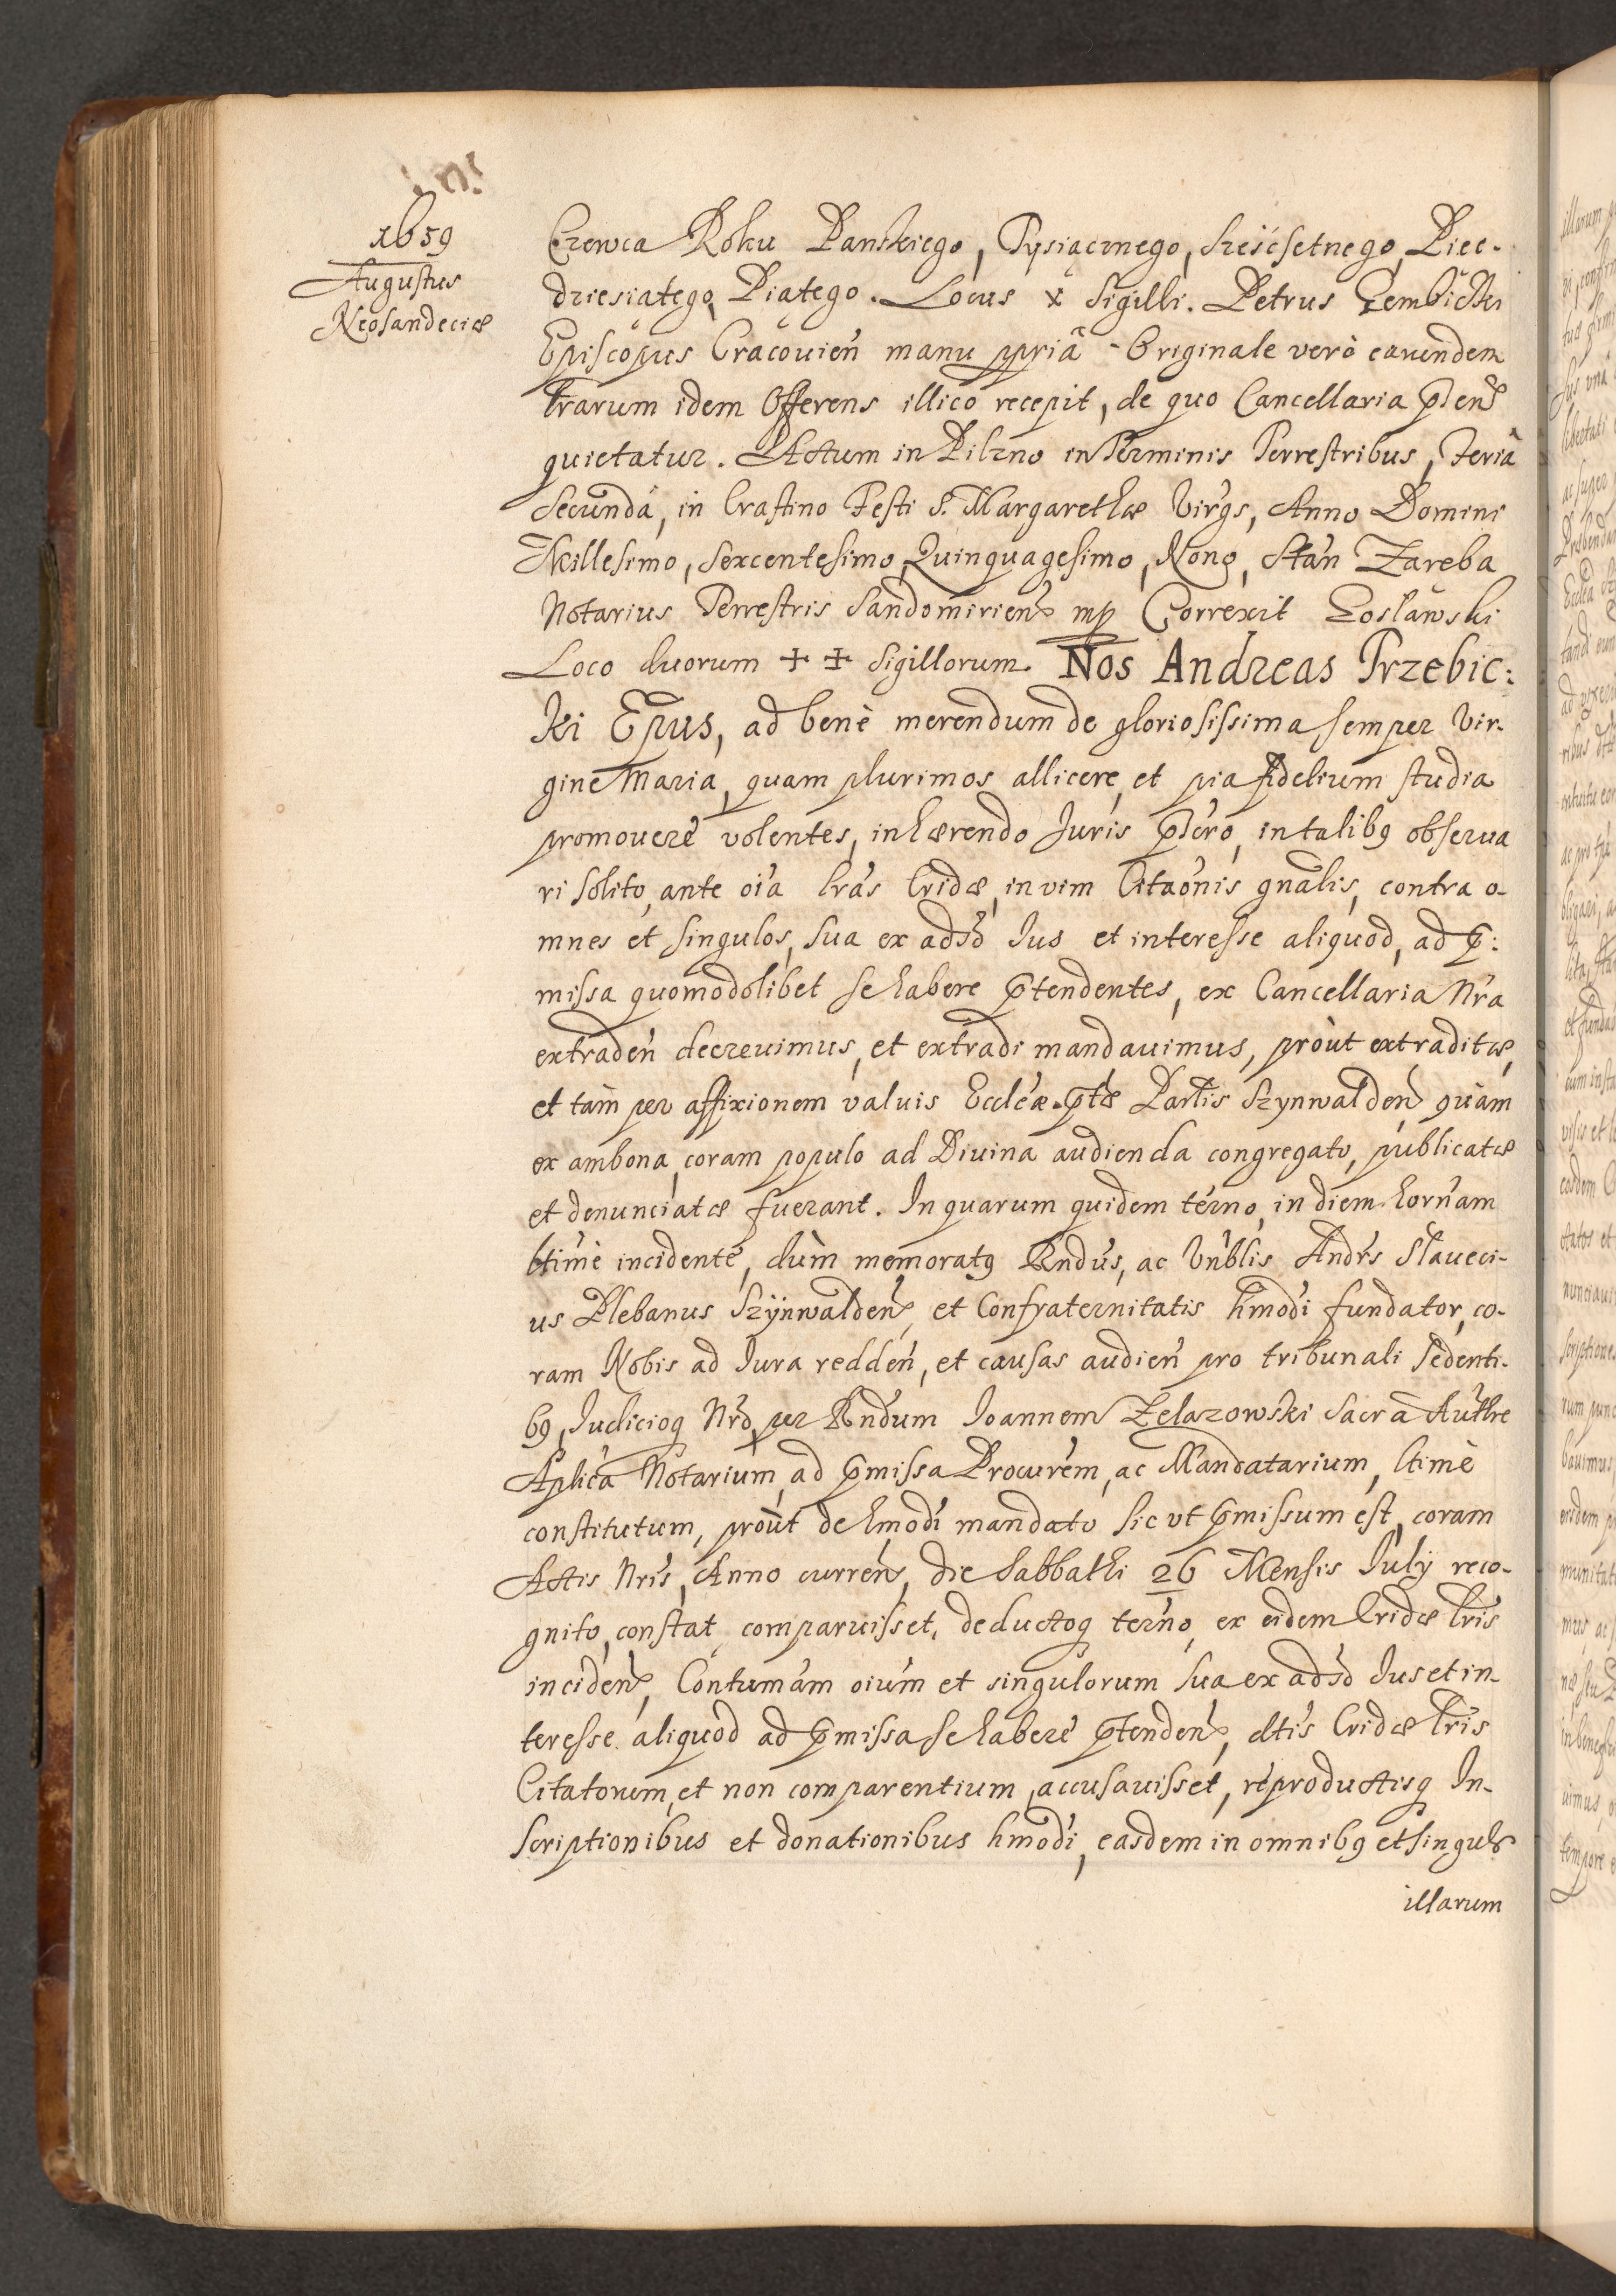 1659
Augustus
Neosandeciæ
Czerwca Roku Panskiego, Tysiącznego, sześćsetnego, Piec-
dziesiątego, Piątego. Locus x Sigilli. Petrus Gembicki
Episcopus Cracouien̄ manu ppriâ - Originale verò earundem
Lrārum idem Offerens illico recepit, de quo Cancellaria p̄dens
quietatur. Actum in Pilzno in Terminis Terrestribus, Feriâ
Secundâ, in Crastino Festi S. Margarethæ Virgs, Anno Domini
Millesimo, Sexcentesimo, Quinquagesimo, Nono, Stan Zaręba
Notarius Terrestris Sandomiriens mp Correxit Goslawski
Loco duorum ++ Sigillorum. Nos Andreas Trzebic:
ki Epus, ad benè merendum de gloriosissima semper Vir-
gine Maria, quam plurimos allicere, et pia fidelium studia
promouere volentes, inhærendo Juris p̄dero, in talibq obserua
ri solito, ante oīa Lrās Cridæ, in vim Citaōnis gnālis, contra o-
mnes et singulos, sua ex adsd Ius et interesse aliquod, ad p̄:
missa quomodolibet se habere p̄tendentes, ex Cancellaria Nrā
extraden̄ decreuimus, et extradi mandauimus, proùt extraditæ,
et tàm per affixionem valuis Eccleæ p̄tæ Partis Szynwalden̄ quàm
ex ambona, coram populo ad Diuina audienda congregato, publicatæ
et denunciatæ fuerant. In quarum quidem térno, in diem hornam
ltimè incidente, dùm memoratq Rndus, ac Vnblis Andrs Slaueci-
us Plebanus Szÿnwaldens, et Confraternitatis hmodi fundator, co-
ram Nobis ad Iura redden̄, et causas audien̄ pro tribunali sedenti-
bq, Iudicioq Nrō, per Rndum Joannem Zelazowski Sacrâ Authre
Aplica Notarium, ad p̄missa Procurem, ac Mandatarium, ltimè
constitutum, proùt de hmodi mandato sic vt p̄missum est, coram
Actis Nris, Anno currens, die Sabbathi 26 Mensis July reco-
gnito, constat comparuisset, deductoq terno, ex eidem Cridæ Lris
incidens, Contumām oium et singulorum sua ex adsd Ius et in-
teresse aliquod ad p̄missa se habere p̄tendens, dtis Cridæ Lris
Citatorum, et non comparentium, accusauisset, reproductisq In-
scriptionibus et donationibus hmodi, easdem in omnibq et singuls
illarum